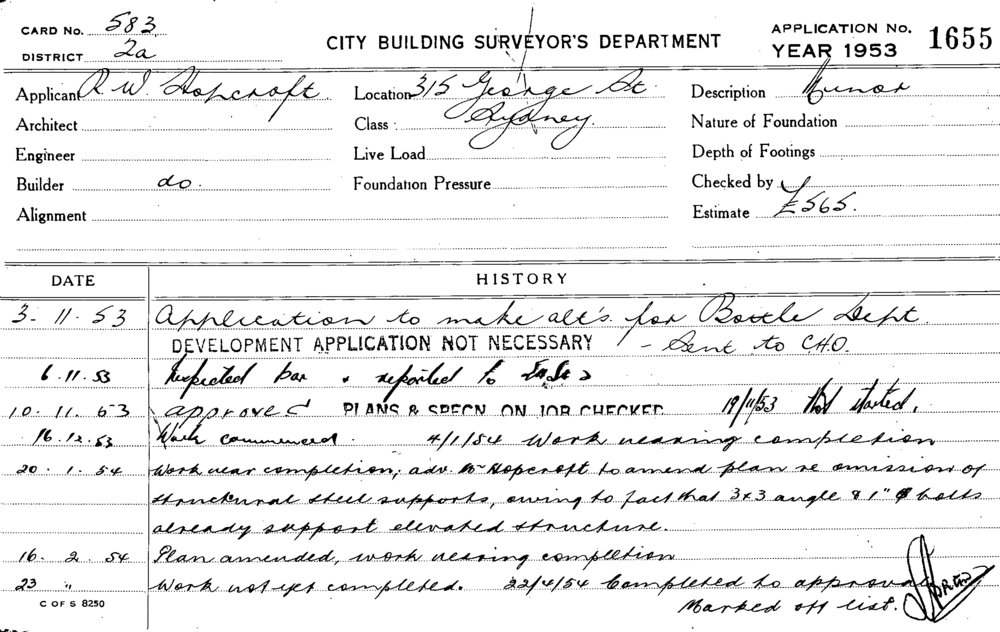 CARD No. 583
DISTRICT 2a
CITY BUILDING SURVEYOR'S DEPARTMENT
APPLICATION No. 1655
YEAR 1953
Applicant R. W. Hopcroft Location 315 George St. Description Minor
Architect Class Sydney. Nature of Foundation
Engineer Live Load Depth of Footings
Builder do. Foundation Pressure Checked by
Alignment Estimate £565.
DATE HISTORY
3. 11. 53 Application to make alt's. for Bottle Dept.
DEVELOPMENT APPLICATION NOT NECESSARY - Sent to C.H.O.
6.11.53 Inspected bar & reported to
10. 11. 53 approved PLANS & SPECN. ON JOB CHECKED 19/11/53 Not started.
16.12.53 Work commenced. 4/1/54 Work nearing completion
20. 1. 54 Work near completion, adv. Mr Hopcroft to amend plan re omission of
structural steel supports, owing to fact that 3x3 angle & 1" ϕ bolts
already support elevated structure.
16. 2. 54 Plan amended, work nearing completion
23 " Work not yet completed. 22/4/54 Completed to approval
Marked off list.
C OF S 8250